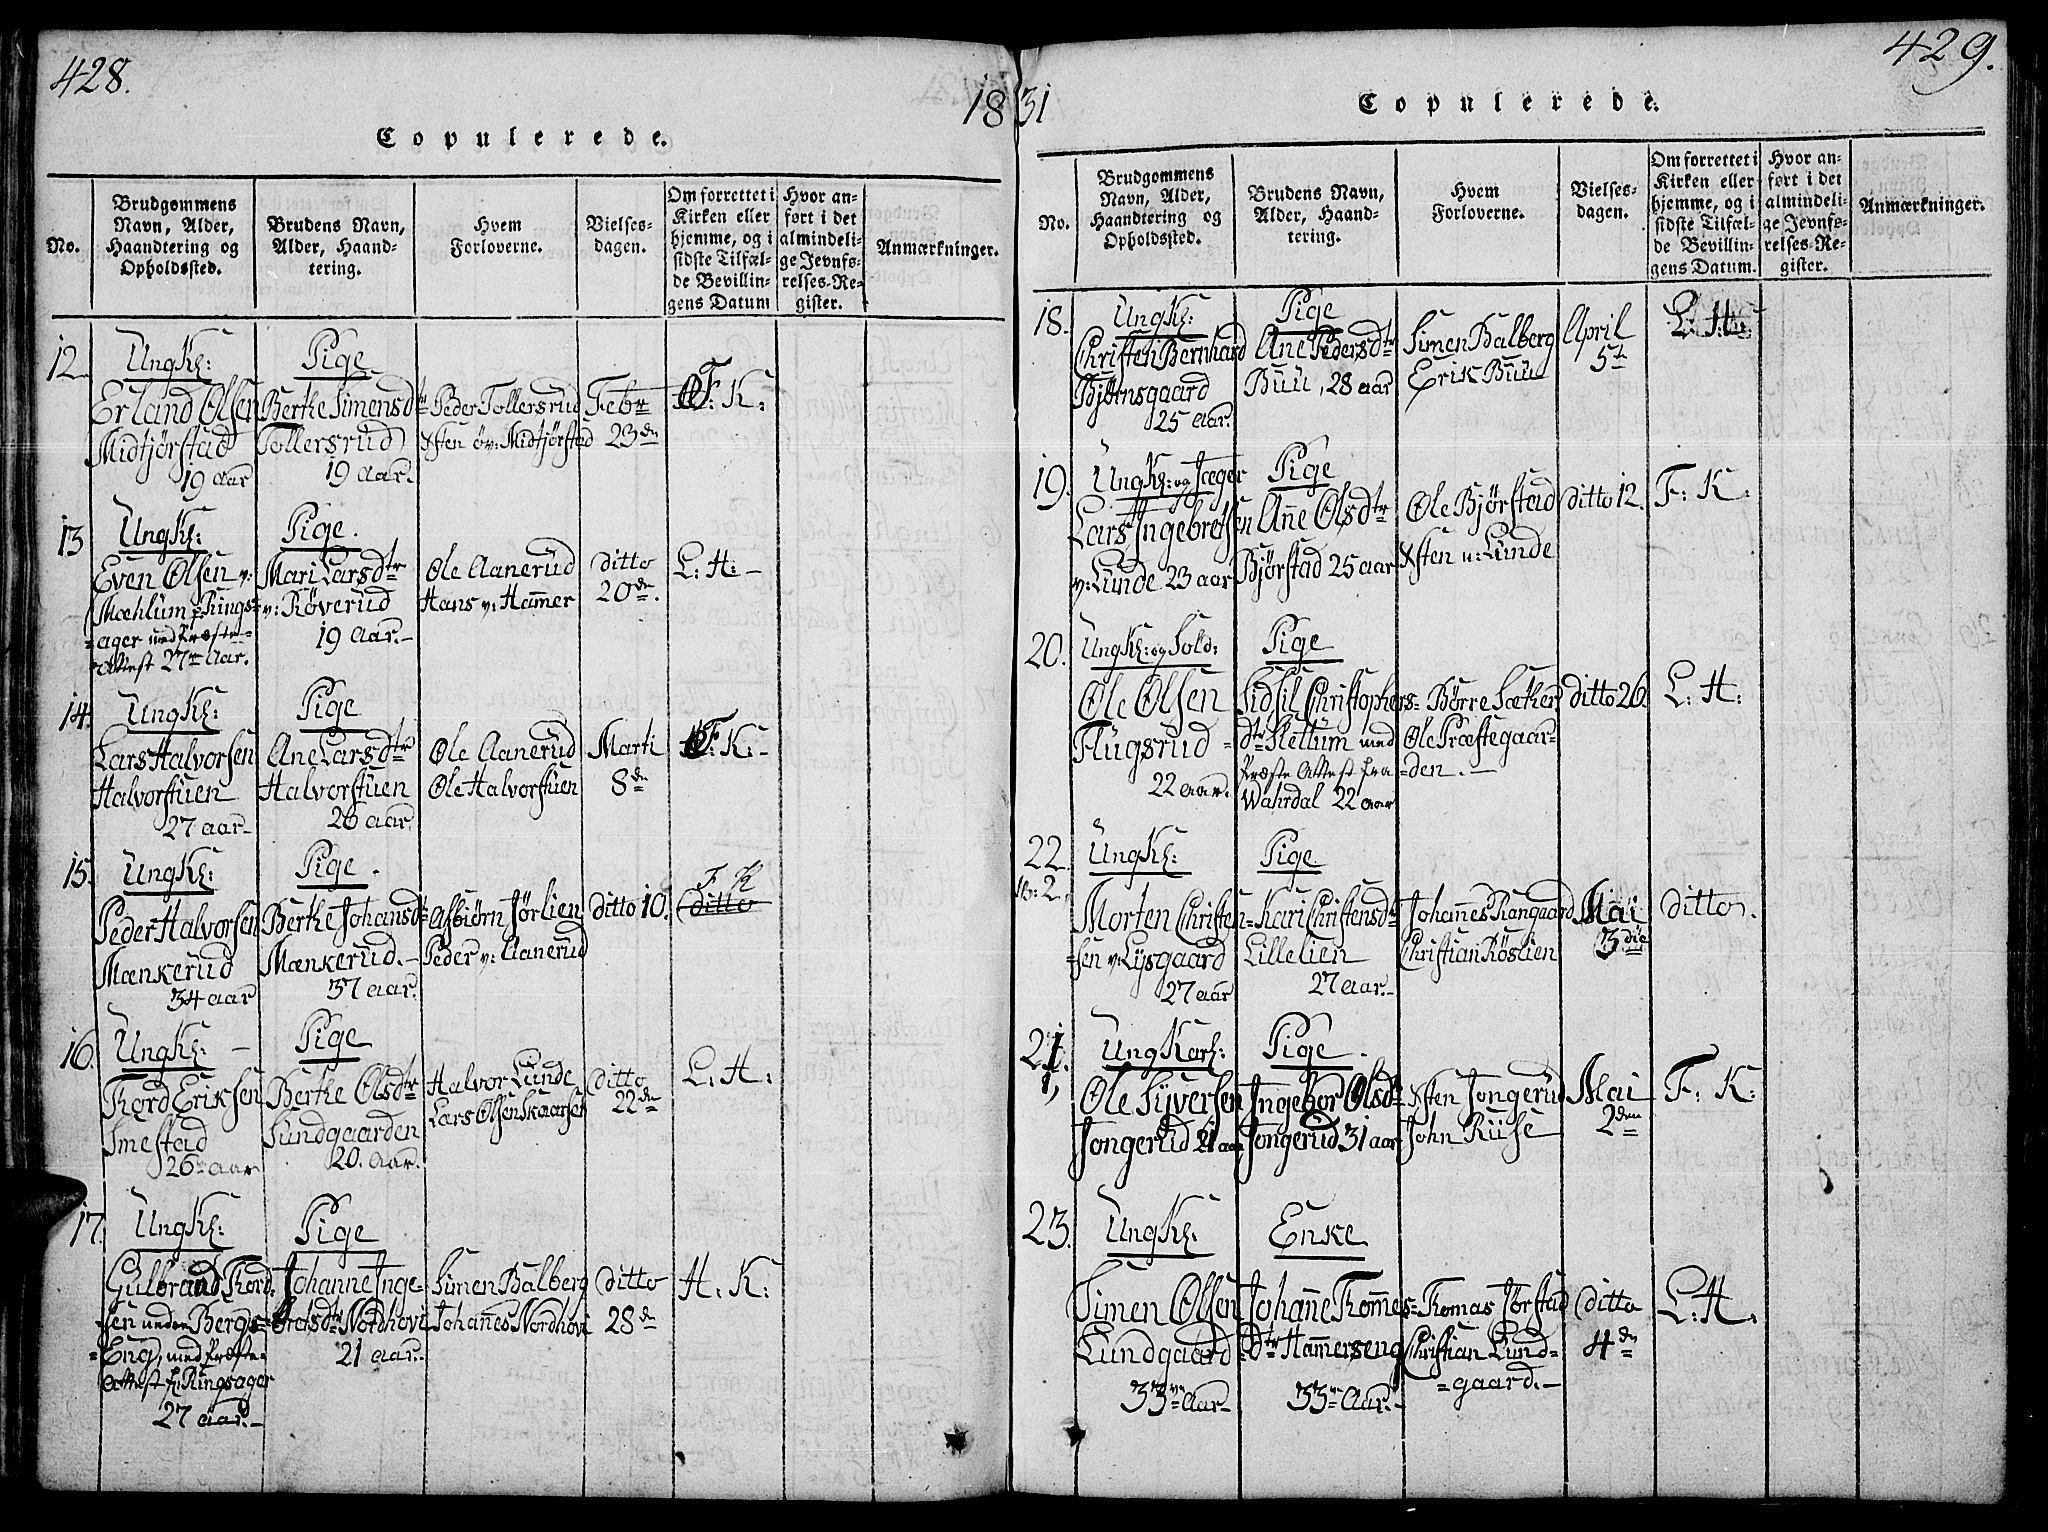 428.
18
Copulerede.
No.
Brudgommens
Navn, Alder,
Haandtering og
Opholdssted.
Brudens Navn,
Alder, Haand-
tering.
Hvem
Forloverne.
Vielses-
dagen.
Om forrettet i
Kirken eller
hjemme, og i
sidste Tilfæl-
de Bevillin-
gens Datum
Hvor an-
ført i det
almindeli-
ge Jevnfø-
relses-Re-
gister.
Anmærkninger.
12.
UngK:
Erland Olsen
Midtjørstad
19 aar
Pige
Berthe Simensdtr
Tollersrud
19 aar.
Peder Tollersrud
Xsten öv: Midtjørstad
Febr
23de
F: K:
13
UngK:
Even Olsen v:
Mæhlum p Rings-
=ager med Præste-
Attest 27 Aar.
Pige.
Mari Larsdtr
v: Röverud
19 aar.-
Ole Aanerud
Hans v: Hammer
ditto
20de.
L: H: -
14.
UngK:
Lars Halvorsen
Halvorstuen
27 aar-
Pige
Ane Larsdtr
Halvorstuen
26 aar.
Ole Aanerud
Ole Halvorstuen
Marti
8de
F: K: -
15.
UngK:
Peder Halvorsen
Mænkerud
34 aar
Pige.
Berthe Johansd
Mænkerud.-
37 aar.
Asbiørn Jørlien
Peder v: Aanerud
ditto 10.
F K
ditto
16.
UngK: -
Thord Eriksen
Smestad
26 aar
Pige
Berthe Olsdtr
Sundgaarden
20. aar.
Halvor Lunde
Lars Olsen Skaarsen
Ditto
22de
L: H:
17.
UngK:
Gulbrand Thord-
sen under Bergs-
=Eng, med Præste-
Attest fr Ringsager
27 aar.-
Pige
Johanne Inge-
bretsdtr Nordhovi
21 aar.-
Simen Balberg
Johanes Nordhovi
ditto
28de
H: K:
429.
31
Copulerede.
No.
Brudgommens
Navn, Alder,
Haandtering og
Opholdssted.
Brudens Navn,
Alder, Haand-
tering.
Hvem
Forloverne.
Vielses-
dagen.
Om forrettet i
Kirken eller
hjemme, og i
sidste Tilfæl-
de Bevillin-
gens Datum.
Hvor an-
ført i det
almindeli-
ge Jevnfø-
relses-Re-
gister.
Anmærkninger.
18.
UngK:
Christen Bernhard
Bjørnsgaard
25 aar.
Pige
Ane Pedersdtr
Buu, 28 aar
Simen Balberg
Erik Buu
April
5te
L: H:
19.
UngK: og Jæger
Lars Ingebretsen
v: Lunde 23 aar
Pige
Ane Olsdtr
Bjørstad 25 aar
Ole Bjørstad
Xsten n: Lunde
ditto 12.
F: K:
20.
UngK: og Sold:
Ole Olsen
Flugsrud
22 aar.
Pige
Sidsil Christophers=
dtr Slettum med
Præste Attest fra
Wahrdal 22 aar
Børre Sæther
Ole Præstegaar-
=den.-
ditto 26.
L: H:
22.
No: 2.
UngK:
Morten Christen=
=sen v: Lysgaard
27 aar
Pige
Kari Christensdtr
Lillelien
27 aar.-
Johannes Rangaard
Christian Röslien
Mai
3die
ditto.
21.
1,
UngKarl:
Ole Syversen
Jongerud 21 aar
Pige.
Ingebor Olsd=
Jongerud 31 aar
Xsten Jongerud
John Riise
Mai
2den
F: K:
23.
UngK:
Simen Olsen
Lundgaard
33 Aar-
Enke
Johanne Thommes=
=Dtr Hammerseng
33 Aar.-
Thomas Jørstad
Christian Lund=
=gaard.-
Ditto
4de
L: H.